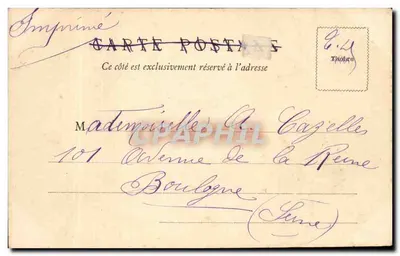 Imprimé
CARTE POSTALE
Ce côté est exclusivement réservé à l'adresse
Timbre
Mademoiselle A. Cazelles
CPAPHIL
101 Avenue de la Reine
Boulogne
(Seine)